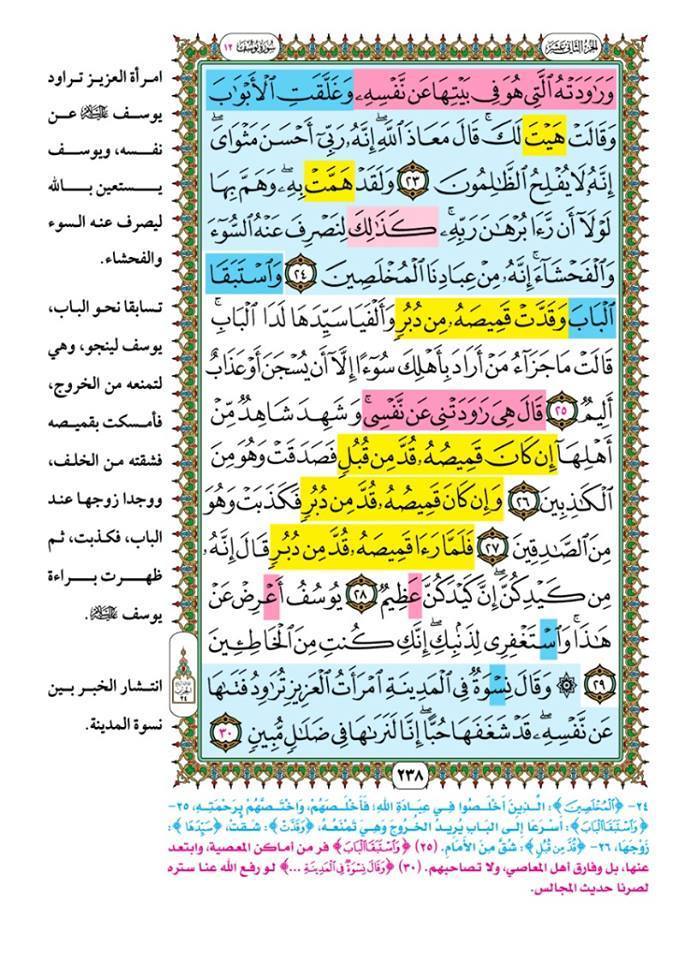 الجزء الثاني عشر
سورة يوسف ١٢
وَرَاوَدَتْهُ الَّتِي هُوَ فِي بَيْتِهَا عَن نَّفْسِهِ وَغَلَّقَتِ الْأَبْوَابَ
وَقَالَتْ هَيْتَ لَكَ ۚ قَالَ مَعَاذَ اللَّهِ ۖ إِنَّهُ رَبِّي أَحْسَنَ مَثْوَايَ ۖ
إِنَّهُ لَا يُفْلِحُ الظَّالِمُونَ ٢٣ وَلَقَدْ هَمَّتْ بِهِ ۖ وَهَمَّ بِهَا
لَوْلَا أَن رَّءَا بُرْهَانَ رَبِّهِ ۚ كَذَٰلِكَ لِنَصْرِفَ عَنْهُ السُّوءَ
وَالْفَحْشَاءَ ۚ إِنَّهُ مِنْ عِبَادِنَا الْمُخْلَصِينَ ٢٤ وَاسْتَبَقَا
الْبَابَ وَقَدَّتْ قَمِيصَهُ مِن دُبُرٍ وَأَلْفَيَا سَيِّدَهَا لَدَا الْبَابِ ۚ
قَالَتْ مَا جَزَاءُ مَنْ أَرَادَ بِأَهْلِكَ سُوءًا إِلَّا أَن يُسْجَنَ أَوْ عَذَابٌ
أَلِيمٌ ٢٥ قَالَ هِيَ رَاوَدَتْنِي عَن نَّفْسِي ۚ وَشَهِدَ شَاهِدٌ مِّنْ
أَهْلِهَا إِن كَانَ قَمِيصُهُ قُدَّ مِن قُبُلٍ فَصَدَقَتْ وَهُوَ مِنَ
الْكَاذِبِينَ ٢٦ وَإِن كَانَ قَمِيصُهُ قُدَّ مِن دُبُرٍ فَكَذَبَتْ وَهُوَ
مِنَ الصَّادِقِينَ ٢٧ فَلَمَّا رَءَا قَمِيصَهُ قُدَّ مِن دُبُرٍ قَالَ إِنَّهُ
مِن كَيْدِكُنَّ ۖ إِنَّ كَيْدَكُنَّ عَظِيمٌ ٢٨ يُوسُفُ أَعْرِضْ عَنْ
هَٰذَا ۚ وَاسْتَغْفِرِي لِذَنبِكِ ۖ إِنَّكِ كُنتِ مِنَ الْخَاطِئِينَ
٢٩ ۞ وَقَالَ نِسْوَةٌ فِي الْمَدِينَةِ امْرَأَتُ الْعَزِيزِ تُرَاوِدُ فَتَاهَا
عَن نَّفْسِهِ ۖ قَدْ شَغَفَهَا حُبًّا ۖ إِنَّا لَنَرَاهَا فِي ضَلَالٍ مُّبِينٍ ٣٠
٢٣٨
امرأة العزيز تراود
يوسف عليه السلام عن
نفسه، ويوسف
يستعين بالله
ليصرف عنه السوء
والفحشاء.
تسابقا نحو الباب،
يوسف لينجو، وهي
لتمنعه من الخروج،
فأمسكت بقميصه
فشقته من الخلف،
ووجدا زوجها عند
الباب، فكذبت، ثم
ظهرت براءة
يوسف عليه السلام.
الحزب
٢٤
انتشار الخبر بين
نسوة المدينة.
٢٤- ﴿الْمُخْلَصِينَ﴾: الَّذِينَ أَخْلَصُوا فِي عِبَادَةِ اللهِ؛ فَأَخْلَصَهُمْ، وَاخْتَصَّهُمْ بِرَحْمَتِهِ، ٢٥-
﴿وَاسْتَبَقَا الْبَابَ﴾: أَسْرَعَا إِلَى البَابِ يُرِيدُ الخُرُوجَ وَهِيَ تَمْنَعُهُ، ﴿وَقَدَّتْ﴾: شَقَّتْ، ﴿سَيِّدَهَا﴾:
زَوْجَهَا، ٢٦- ﴿قُدَّ مِن قُبُلٍ﴾: شُقَّ مِنَ الأَمَامِ. (٢٥) ﴿وَاسْتَبَقَا الْبَابَ﴾ فر من أماكن المعصية، وابتعد
عنها، بل وفارق أهل المعاصي، ولا تصاحبهم. (٣٠) ﴿وَقَالَ نِسْوَةٌ فِي الْمَدِينَةِ ...﴾ لو رفع الله عنا ستره
لصرنا حديث المجالس.